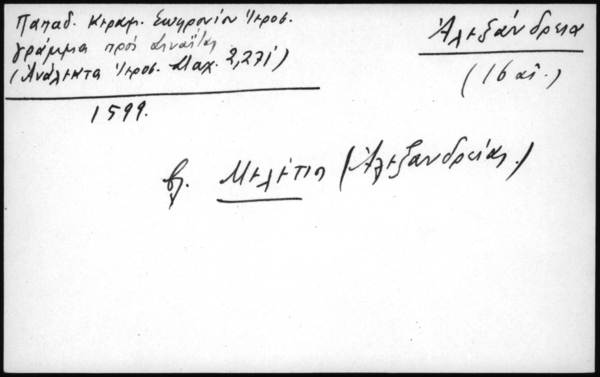 Παπαδ. Κεραμ. Σωφρονίου Ἱεροσ.
γράμμα πρὸς Σιναΐτας
(Ἀνάλεκτα Ἱεροσ. Σταχ. 2,271)
1599.
Ἀλεξάνδρεια
(16 αἰ.)
βλ. Μελέτιος (Ἀλεξανδρείας)